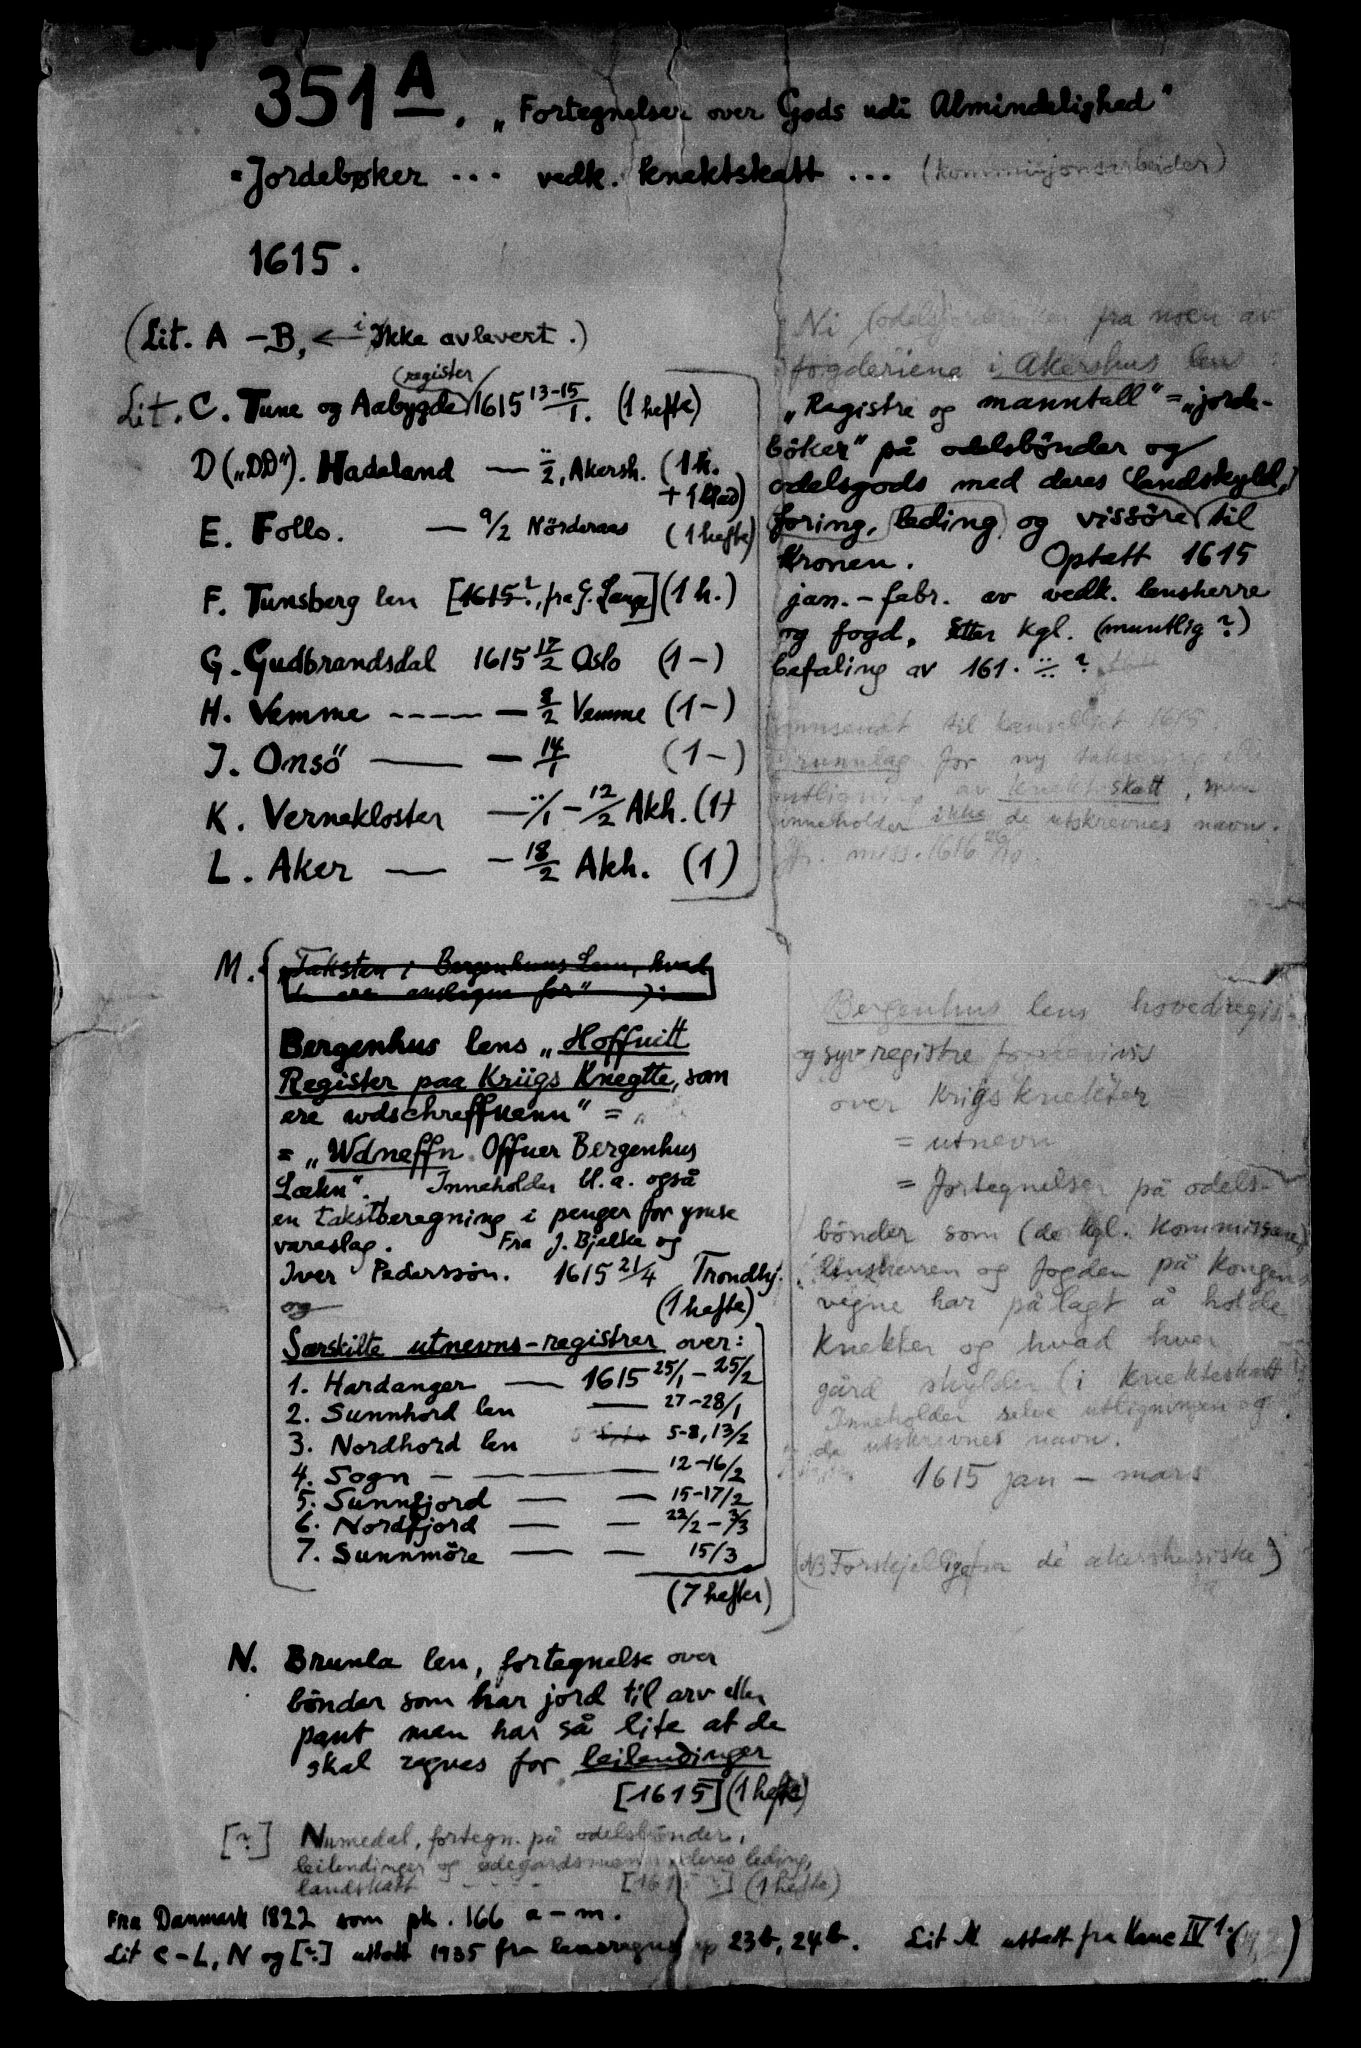 351 A. „Fortegnelser over Gods udi Almindelighed"
= Jordebøker ... vedk. knektskatt ... (kommisjonsarbeider)
1615.
(Lit. A – B, ← ikke avlevert.)
(register)
Lit. C. Tune og Aabygde 1615 13-15/1. (1 hefte)
D („DD"). Hadeland — ../2, Akersh. (1 h.
+ 1 blad)
E. Follo. — 9/2 Nörderaas (1 hefte)
F. Tunsberg len [1615?, fra G. Lange] (1 h.)
G. Gudbrandsdal 1615 17/2 Oslo (1 –)
H. Vemme ---- — 8/2 Vemme (1 –)
J. Onsö — — 14/1 (1 –)
K. Vernekloster — ../1 – 12/2 Akh. (1)
L. Aker — – 18/2 Akh. (1)
Ni (odels) fra noen av
fogderiene i Akershus len
„Registre og manntall" = „jorde-
bøker" på odelsbønder og
odelsgods med deres landskyld,
foring, leding og vissöre til
Kronen. Optatt 1615
jan. – febr. av vedk. lensherre
og fogd, etter kgl. (muntlig?)
befaling av 161. ?
Innsendt til kanselliet 1615.
Grunnlag for ny taksering
utligning av knekteskatt, men
inneholder ikke de utskrevnes navn.
miss. 1616
M. „Taksten i Bergenhus Len, hvad
Bergenhus lens „Hoffuitt
Register paa Kriigs Knegtte, som
ere wdschreffuenn" =
= „Wdneffn Offuer Bergenhus
Læhn". Inneholder bl. a. også
en takstberegning i penger for ymse
vareslag. Fra J. Bjelke og
Iver Pederssøn. 1615 21/4 Trondhj.
og (1 hefte)
Særskilte utnevns-registrer over:
1. Hardanger — 1615 25/1 – 25/2
2. Sunnhord len — 27-28/1
3. Nordhord len 5-8, 13/2
4. Sogn — — — 12-16/2
5. Sunnfjord — — 15-17/2
6. Nordfjord — — 22/2 – 3/3
7. Sunnmöre — — 15/3
(7 hefter)
Bergenhus lens hovedregis-
og syv registre
over Krigsknekter
= utnevn
= fortegnelser på odels-
bønder som (de kgl. Kommissarer)
lensherren og fogden på Kongens
vegne har pålagt å holde
Knekter og hvad hver
gård skylder (i knekteskatt
Inneholder selve utligningen og
de utskrevnes navn.
1615 jan – mars
(NB Forskjellige fra de akershusiske!)
N. Brunla len, fortegnelse over
bönder som har jord til arv eller
pant men har så lite at de
skal regnes for leilendinger
[1615] (1 hefte)
[?] Numedal, fortegn. på odelsbönder,
leilendinger og ødegårdsmenn, deres leding,
landskatt [161 ] (1 hefte)
Fra Danmark 1822 som pk. 166 a – m.
Lit C – L, N og [?] uttatt 1935 fra lensregnsk 23b, 24b. Lit M uttatt fra Kanc IV 1.